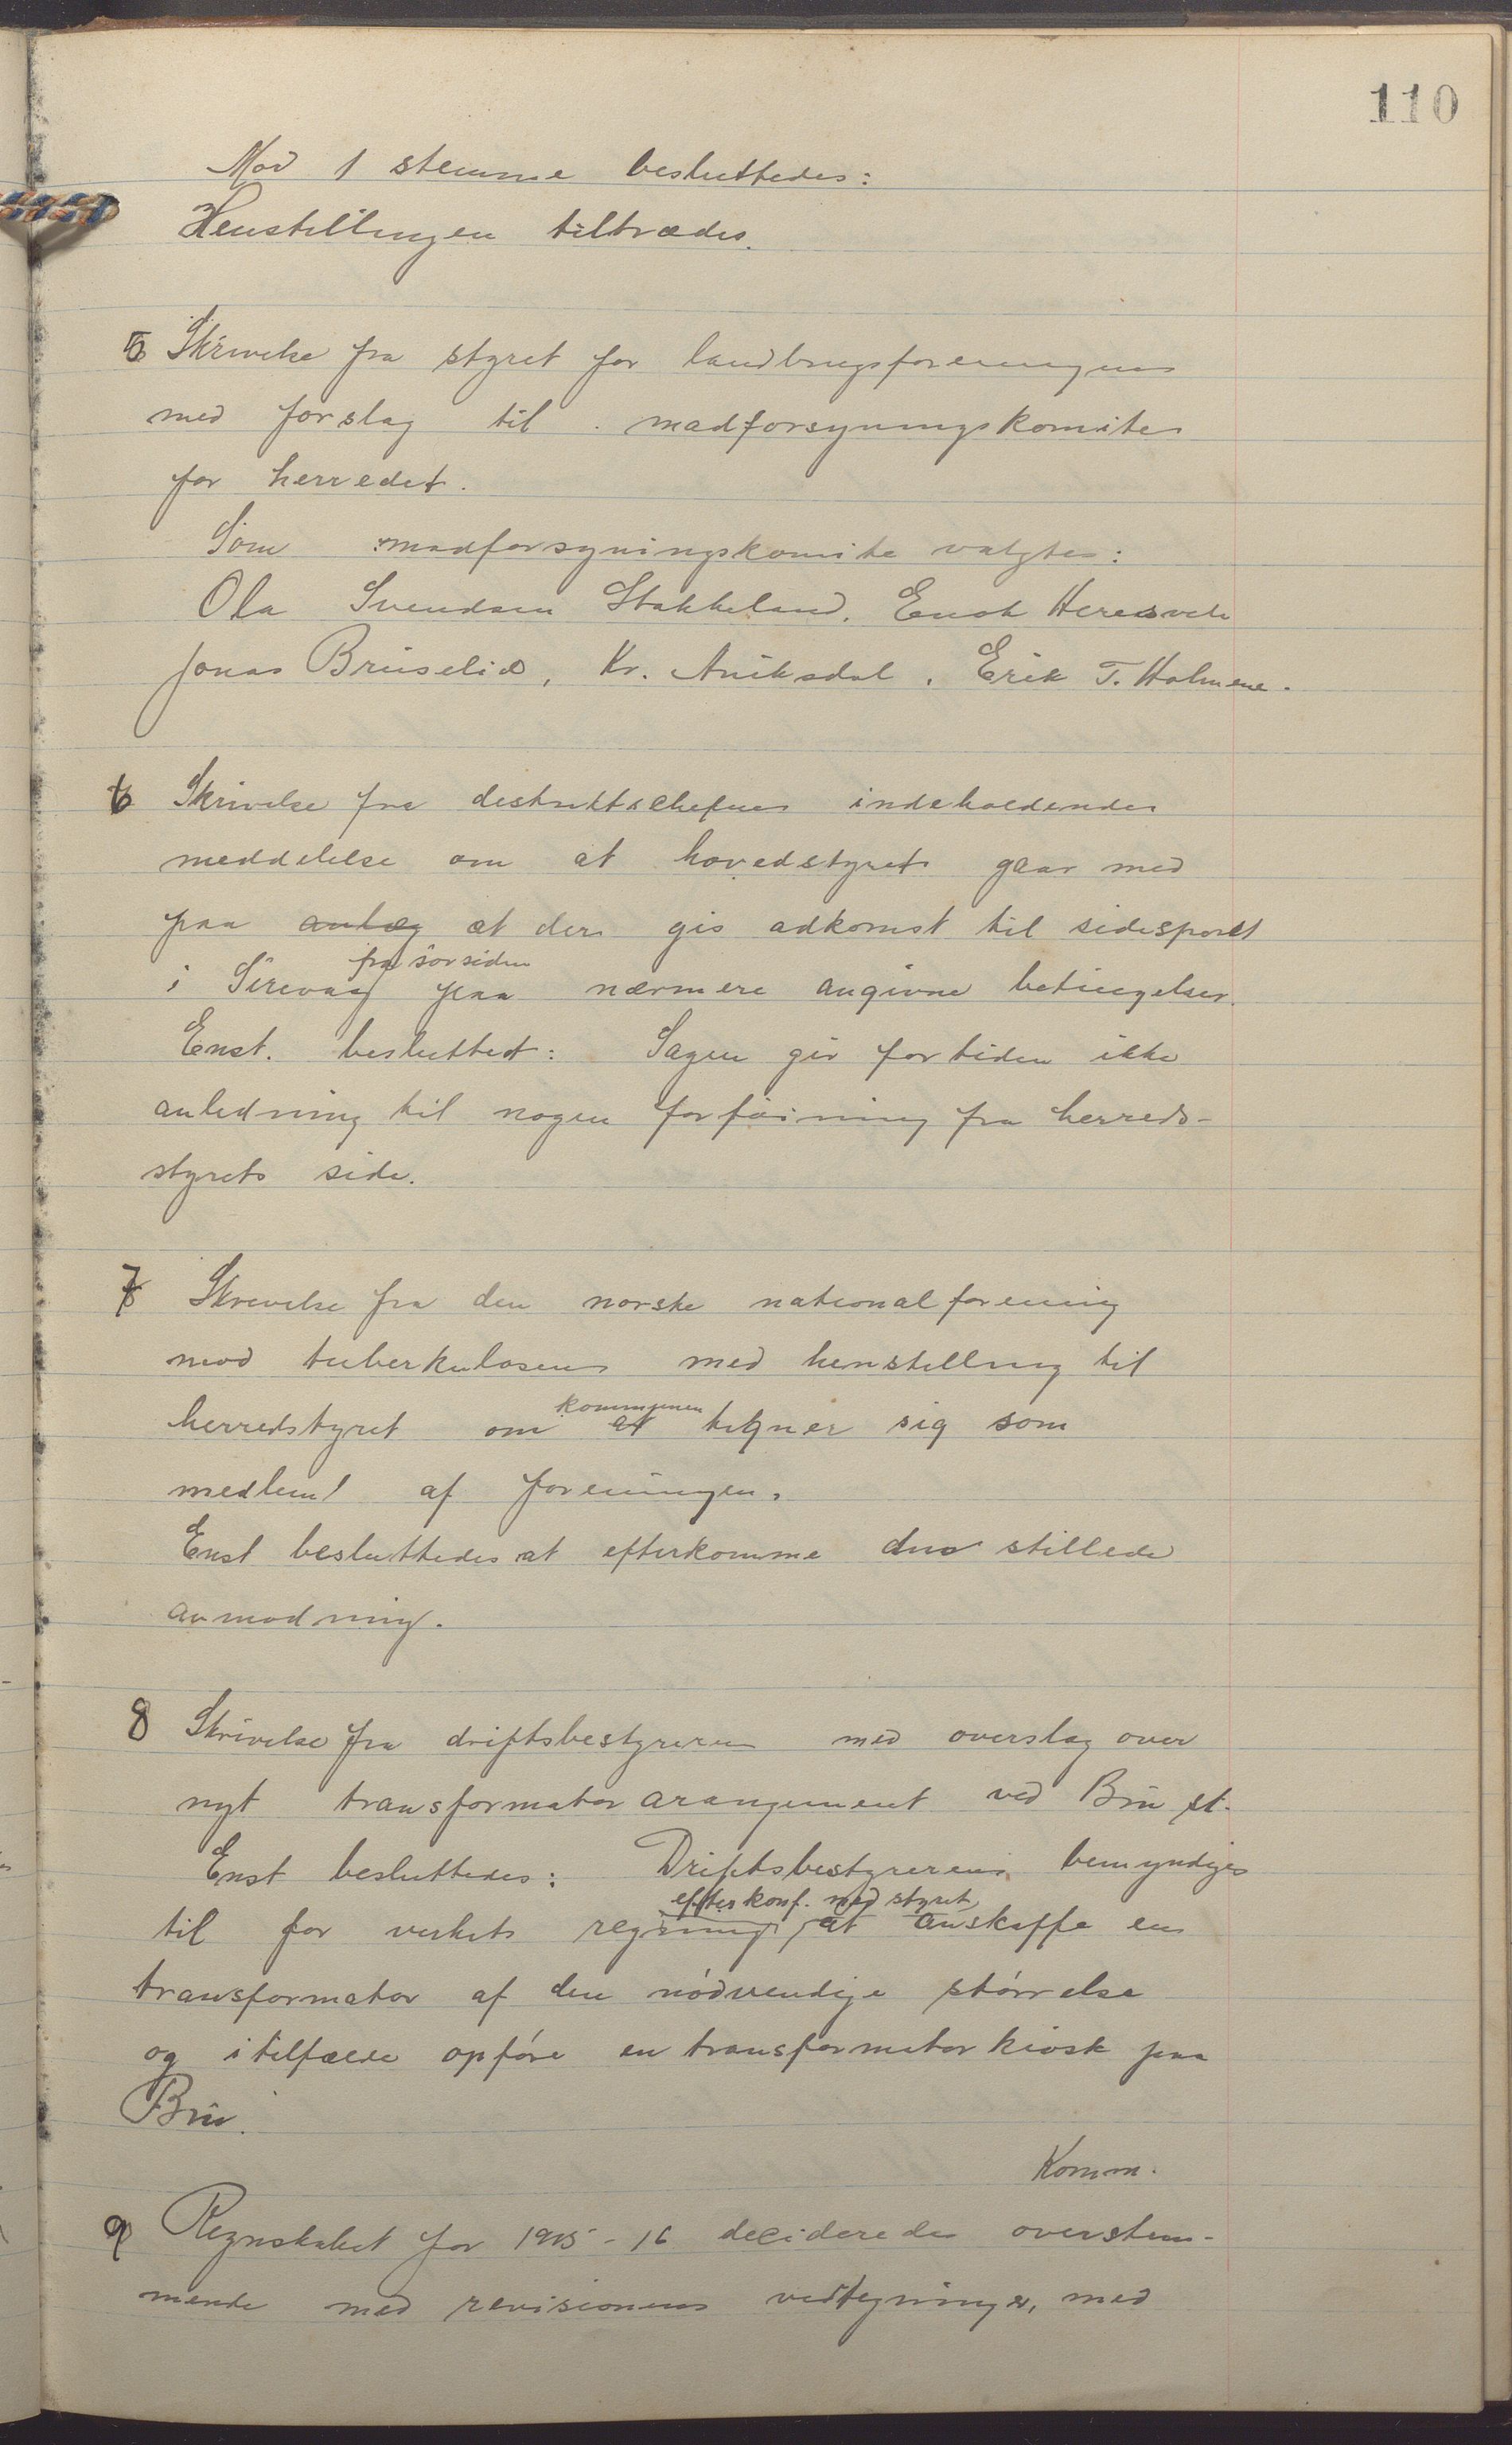 110
Mod 1 stemme besluttedes:
Henstillingen tiltrædes.
5 Skrivelse fra styret for landbrugsforeningen
med forslag til madforsyningskomite
for herredet.
Som madforsyningskomite valgtes:
Ola Svendsen Stokkeland, Enok Heresvela
Jonas Bruselid, Kr. Aniksdal, Erik T. Holmene.
6 Skrivelse fra destriktschefen indeholdende
meddelelse om at hovedstyret gaar med
paa anlæg at der gis adkomst til sidesporet
fra sörsiden
i Sirevaag paa nærmere angivne betingelser.
Enst. besluttet: Sagen gir fortiden ikke
anledning til nogen forföining fra herreds-
styrets side.
7 Skrivelse fra den norske nationalforening
mod tuberkulosen med henstilling til
kommunen
herredstyret om at tegner sig som
medlem af foreningen.
Enst besluttedes at efterkomme den stillede
anmodning.
8 Skrivelse fra driftsbestyreren med overslag over
nyt transformator arangement ved Bru st.
Enst besluttedes: Driftsbestyreren bemyndiges
efter konf. med styret
til for verkets regning at anskaffe en
transformator af den nódvendige störrelse
og i tilfælde opföre en transformator kiosk paa
Bru.
Komm.
9 Regnskabet for 1915-16 decideredes overstem-
mende med revisionens vedtegninger, med